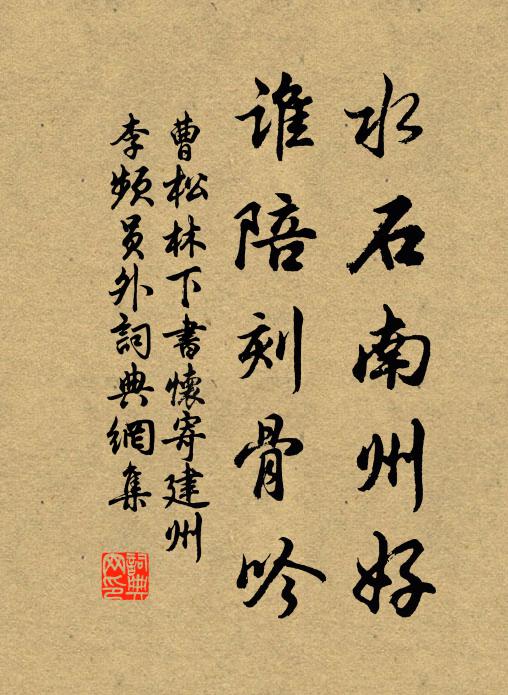 水石南州好
誰陪刻骨吟
曹松林下書懷寄建州
李頻員外詞典網集
詞典網印